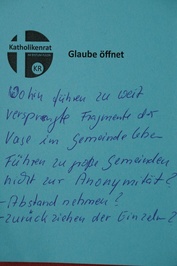 Katholikenrat
KR
Glaube öffnet
Wohin führen zu weit
versprengte Fragmente der
Vase im Gemeindeleben
Führen zu große Gemeinden
nicht zur Anonymität?
- Abstand nehmen?
- zurückziehen der Einzelnen?